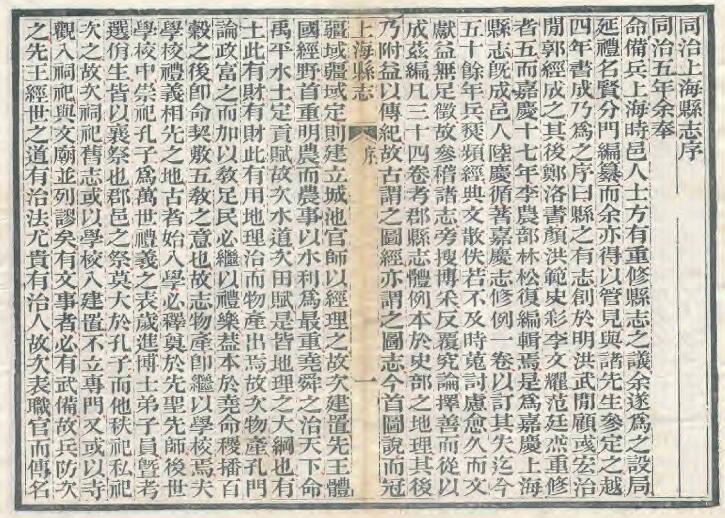 同治上海縣志序
同治五年余奉
命備兵上海時邑人士方有重修縣志之議余遂爲之設局
延禮名賢分門編纂而余亦得以管見與諸先生參定之越
四年書成乃爲之序曰縣之有志創於明洪武間顧彧宏治
間郭經成之其後鄭洛書顏洪範史彩李文耀范廷杰重修
者五而嘉慶十七年李農部林松復編輯焉是爲嘉慶上海
縣志旣成邑人陸慶循著嘉慶志修例一卷以訂其失迄今
五十餘年兵燹頻經典文散佚若不及時蒐討慮愈久而文
獻益無足徵故參稽諸志旁搜博采反覆究論擇善而從以
成茲編凡三十四卷考郡縣志體例本於史部之地理其後
乃附益以傳紀故古謂之圖經亦謂之圖志今首圖說而冠
上海縣志 序 一
疆域疆域定則建立城池官師以經理之故次建置先王體
國經野首重明農而農事以水利爲最重堯舜之治天下命
禹平水土定貢賦故次水道次田賦是皆地理之大綱也有
土此有財有財此有用地理治而物產出焉故次物產孔門
論政富之而加以敎足民必繼以禮樂葢本於堯命稷播百
穀之後卽命契敷五敎之意也故志物產卽繼以學校焉夫
學校禮義相先之地古者始入學必釋奠於先聖先師後世
學校中崇祀孔子爲萬世禮義之表歲進博士弟子員曁考
選佾生皆以襄祭也郡邑之祭莫大於孔子而他秩祀私祀
次之故次祠祀舊志或以學校入建置不立專門又或以寺
觀入祠祀與文廟並列謬矣有文事者必有武備故兵防次
之先王經世之道有治法尤貴有治人故次表職官而傳名